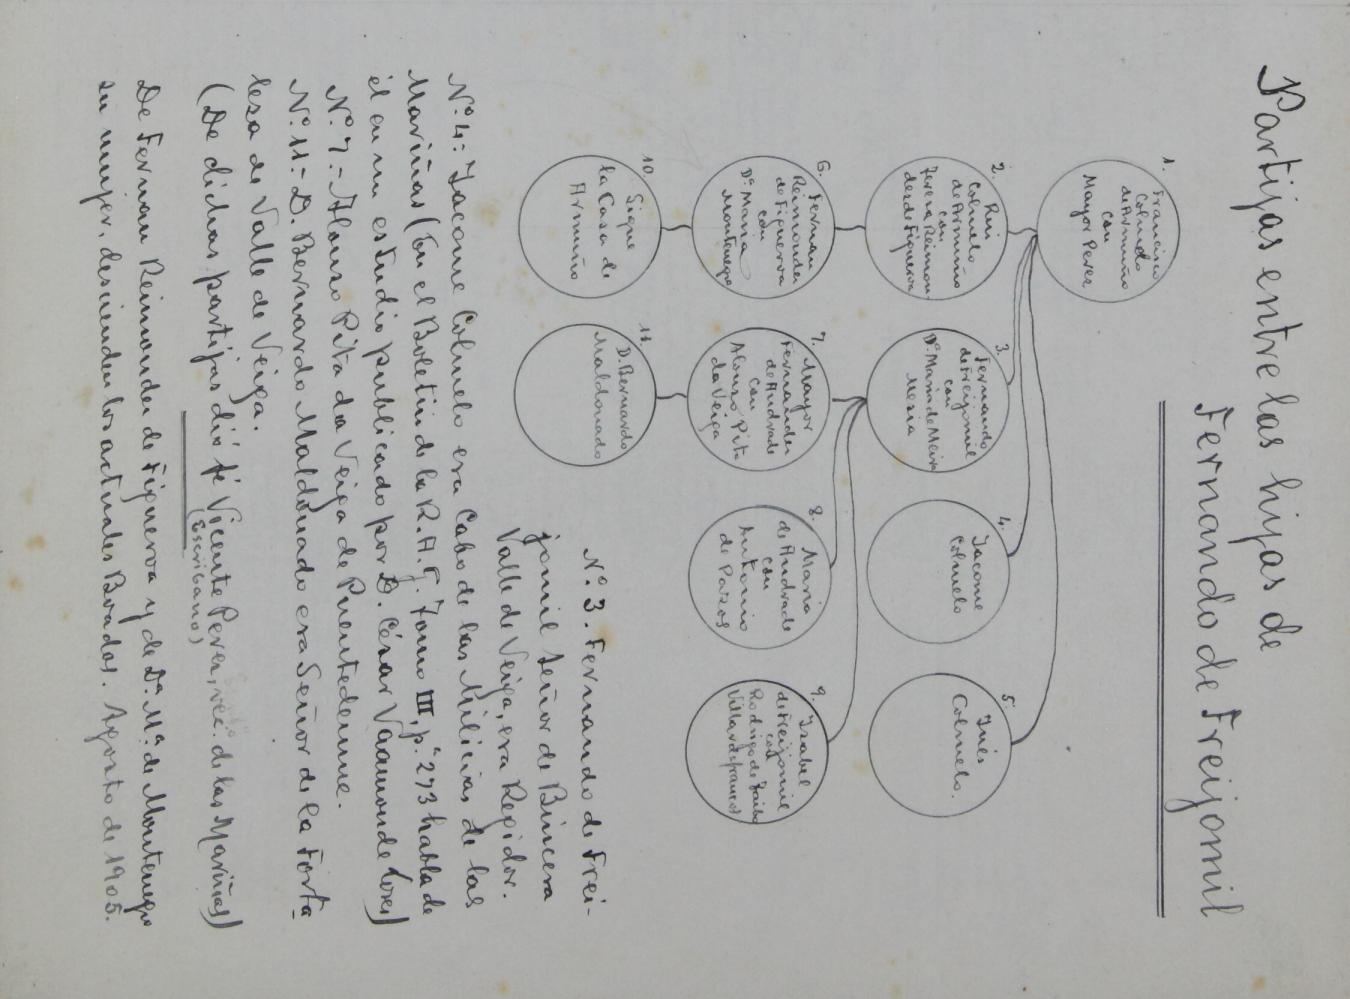 Partijas entre las hijas de
Fernando de Freijomil
1.
Francisco
Colmelo
de Armuño
con
Mayor Perez
2.
Rui
Colmelo
de Armuño
con
Teresa Reimon-
dez de Figueroa
3.
Fernando
de Freijomil
con
Dª Maria de Neira
Mesia
4.
Jacome
Colmelo
5.
Inés
Colmelo.
6.
Fernan
Reimondez
de Figueroa
con
Dª Maria
Montenegro
7.
Mayor
Fernandez
de Andrade
con
Alonso Pita
da Veiga
8.
Maria
de Andrade
con
Antonio
de Pazos
9.
Isabel
de Freijomil
con
Rodrigo de
Villardefrancos
10.
Sigue
la Casa de
Armuño
11.
D. Bernardo
Maldonado
Nº 3. Fernando de Frei-
jomil Señor de
Valle de Veiga, era Regidor.
Nº 4: Jacome Colmelo era Cabo de las Milicias de las
Mariñas (En el Boletin de la R.A.G. Tomo III, p. 273 habla de
él en un estudio publicado por D. César Vaamonde Lores)
Nº 7.- Alonso Pita da Veiga de Puentedeume.
Nº 11- D. Bernardo Maldonado era Señor de la Forta-
leza de Valle de Veiga.
(De dichas partijas dió fé Vicente Perez, vecº de las Mariñas)
(Escribano)
De Fernan Reimondez de Figueroa y de Dª Mª de Montenegro
su mujer, descienden los actuales Boados. Agosto de 1905.